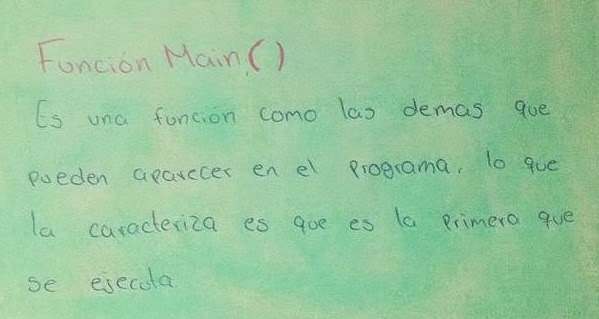 Función Main ()
Es una función como las demas que
pueden aparecer en el programa, lo que
la caracteriza es que es la primera que
se ejecuta